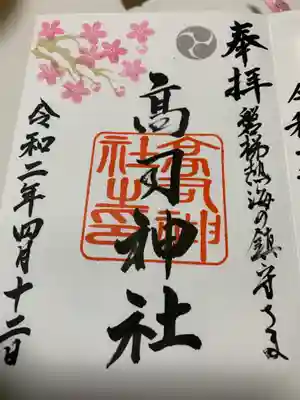 奉拝
磐梯熱海の鎮守さま
高司神社
高司神
社之印
令和二年四月十二日